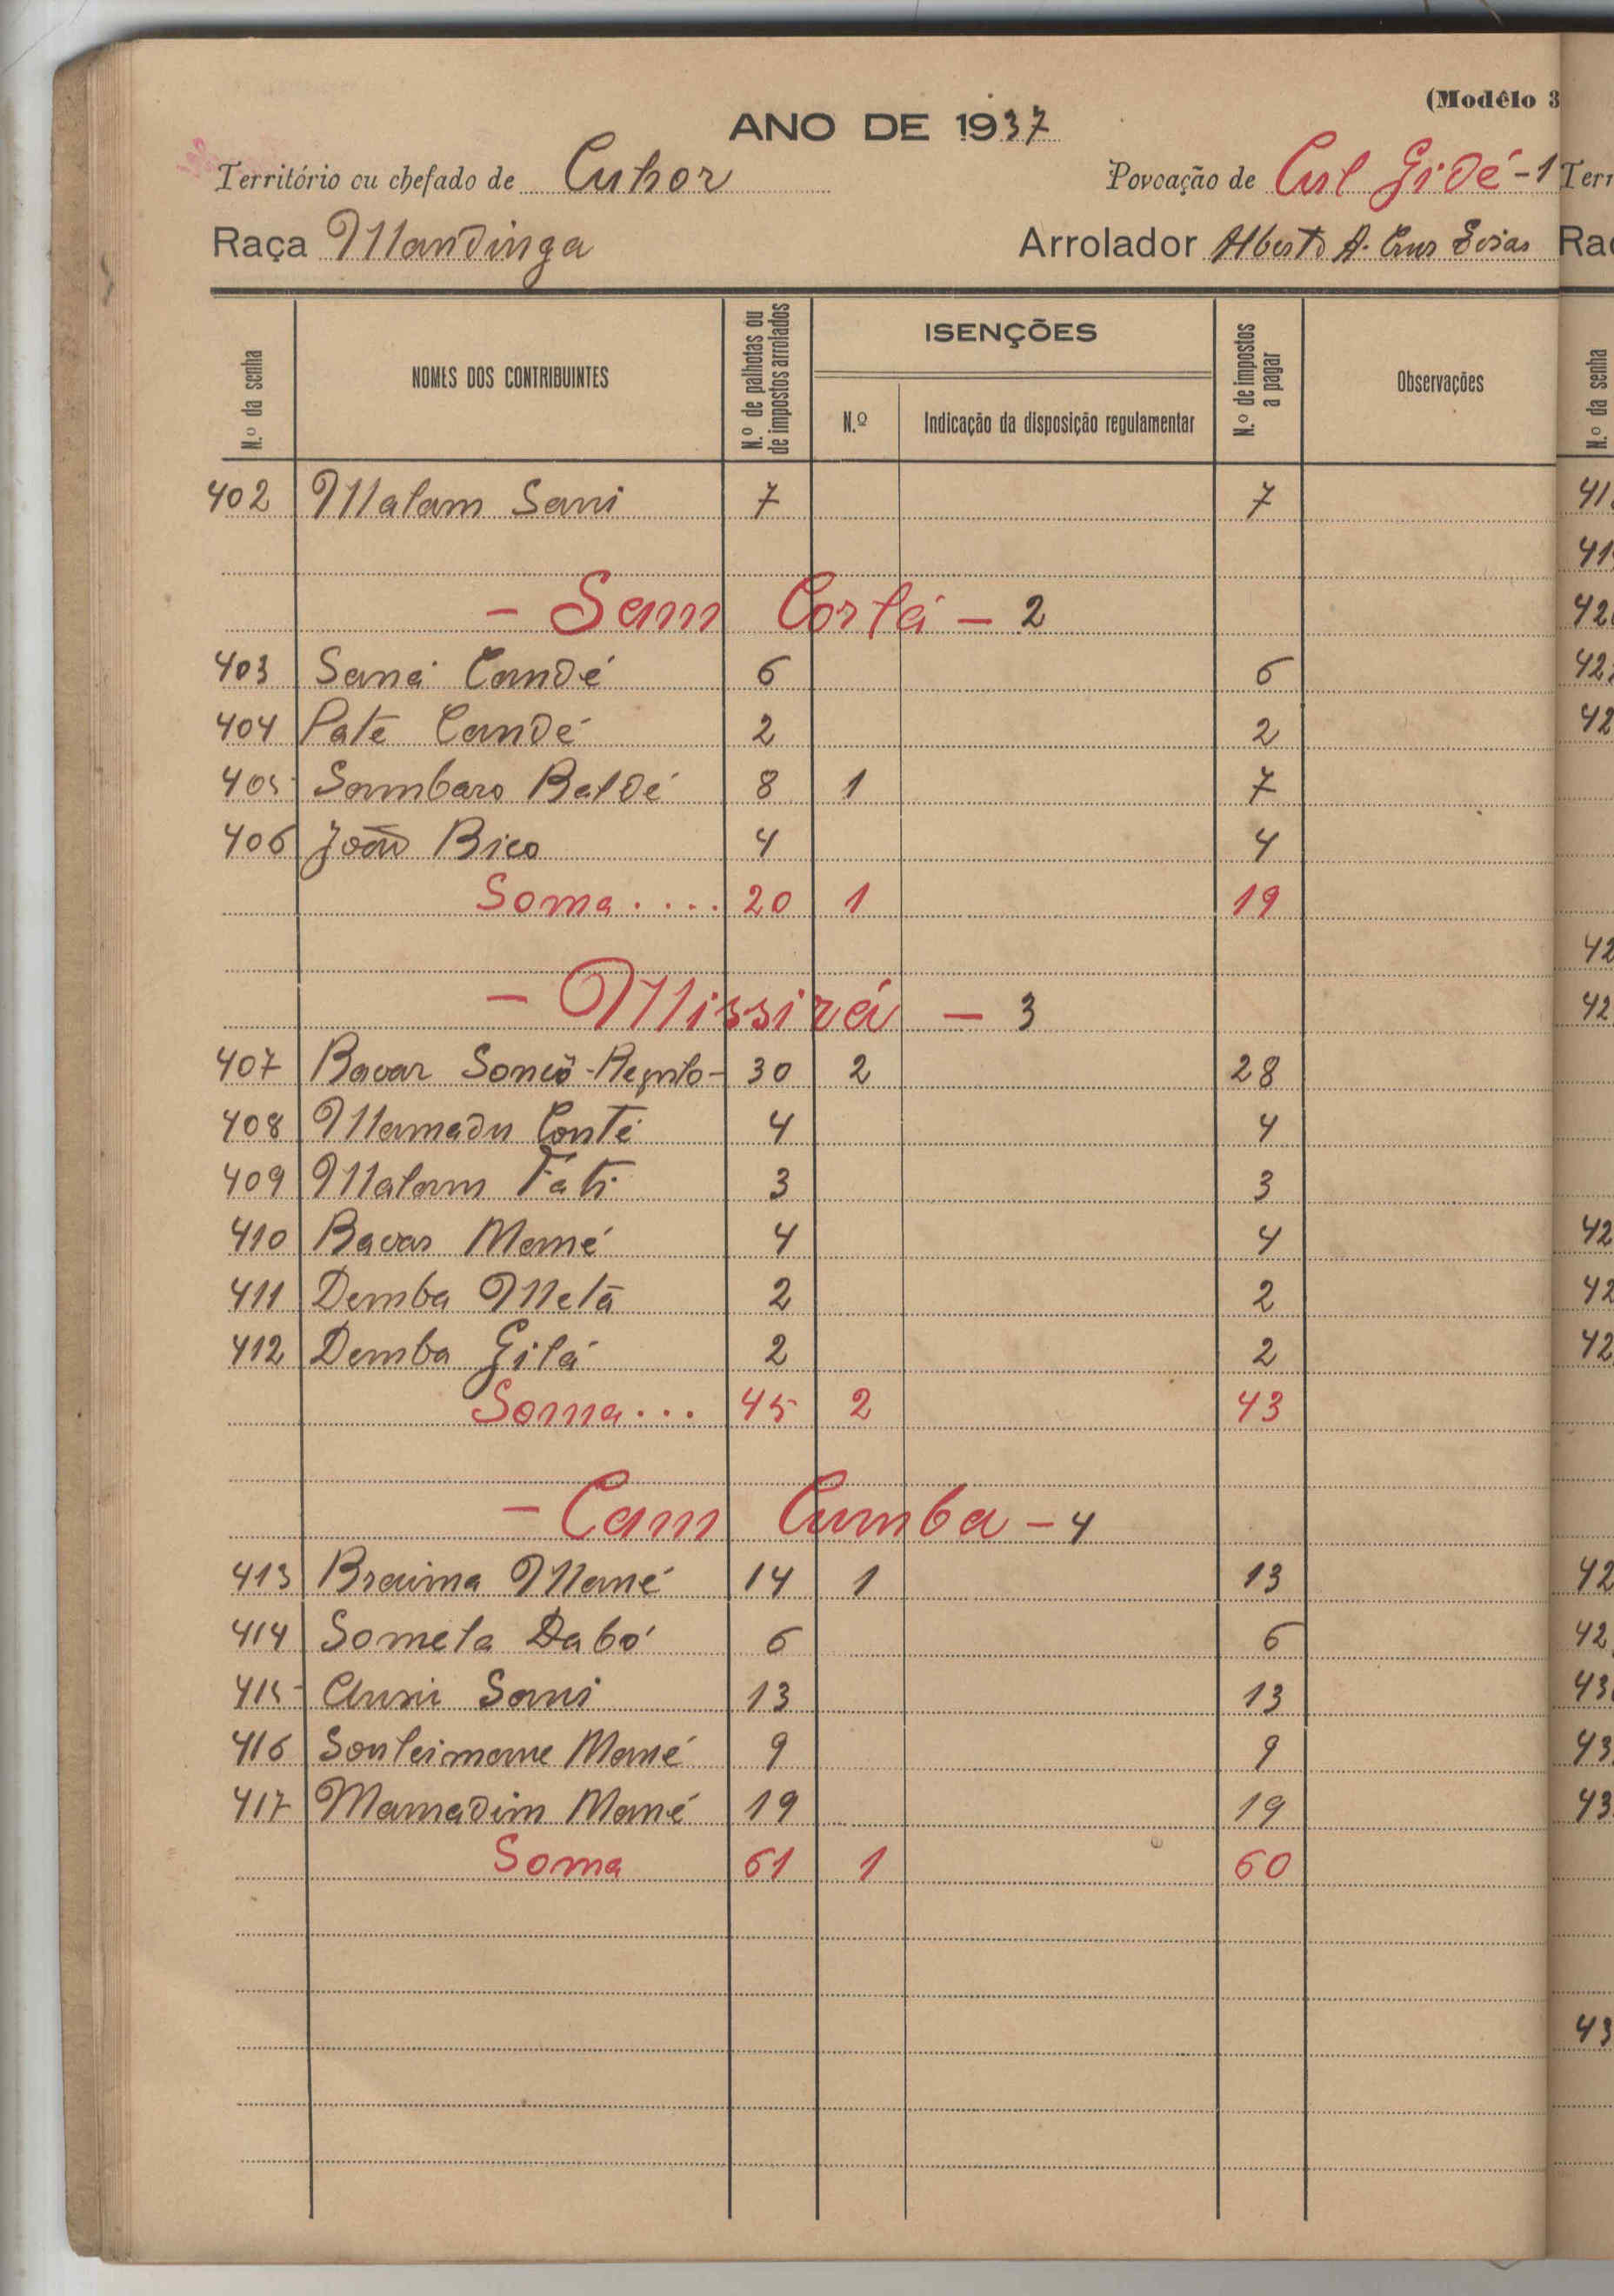 (Modêlo 3
ANO DE 1937
Território ou chefado de Cuhor Povoação de Cul Gidé - 1
Raça Mandinga Arrolador Alberto A. Cruz
N.º da senha NOMES DOS CONTRIBUINTES N.º de palhotas ou de impostos arrolados ISENÇÕES N.º de impostos a pagar Observações
N.º Indicação da disposição regulamentar
402 Malam Sani 7 7
- Sam Corlá - 2
403 Saná Candé 6 6
404 Paté Candé 2 2
405 Sambaro Baldé 8 1 7
406 João Bico 4 4
Soma .... 20 1 19
- Missirá - 3
407 Bacar Soncó - Regulo - 30 2 28
408 Mamadu Conté 4 4
409 Malam Fati 3 3
410 Bacar Mané 4 4
411 Demba Metá 2 2
412 Demba Gilá 2 2
Soma ... 45 2 43
- Cam Cumba - 4
413 Braima Mané 14 1 13
414 Somela Dabó 6 6
415 Sani 13 13
416 Souleimane Mané 9 9
417 Mamadim Mané 19 19
Soma 61 1 60